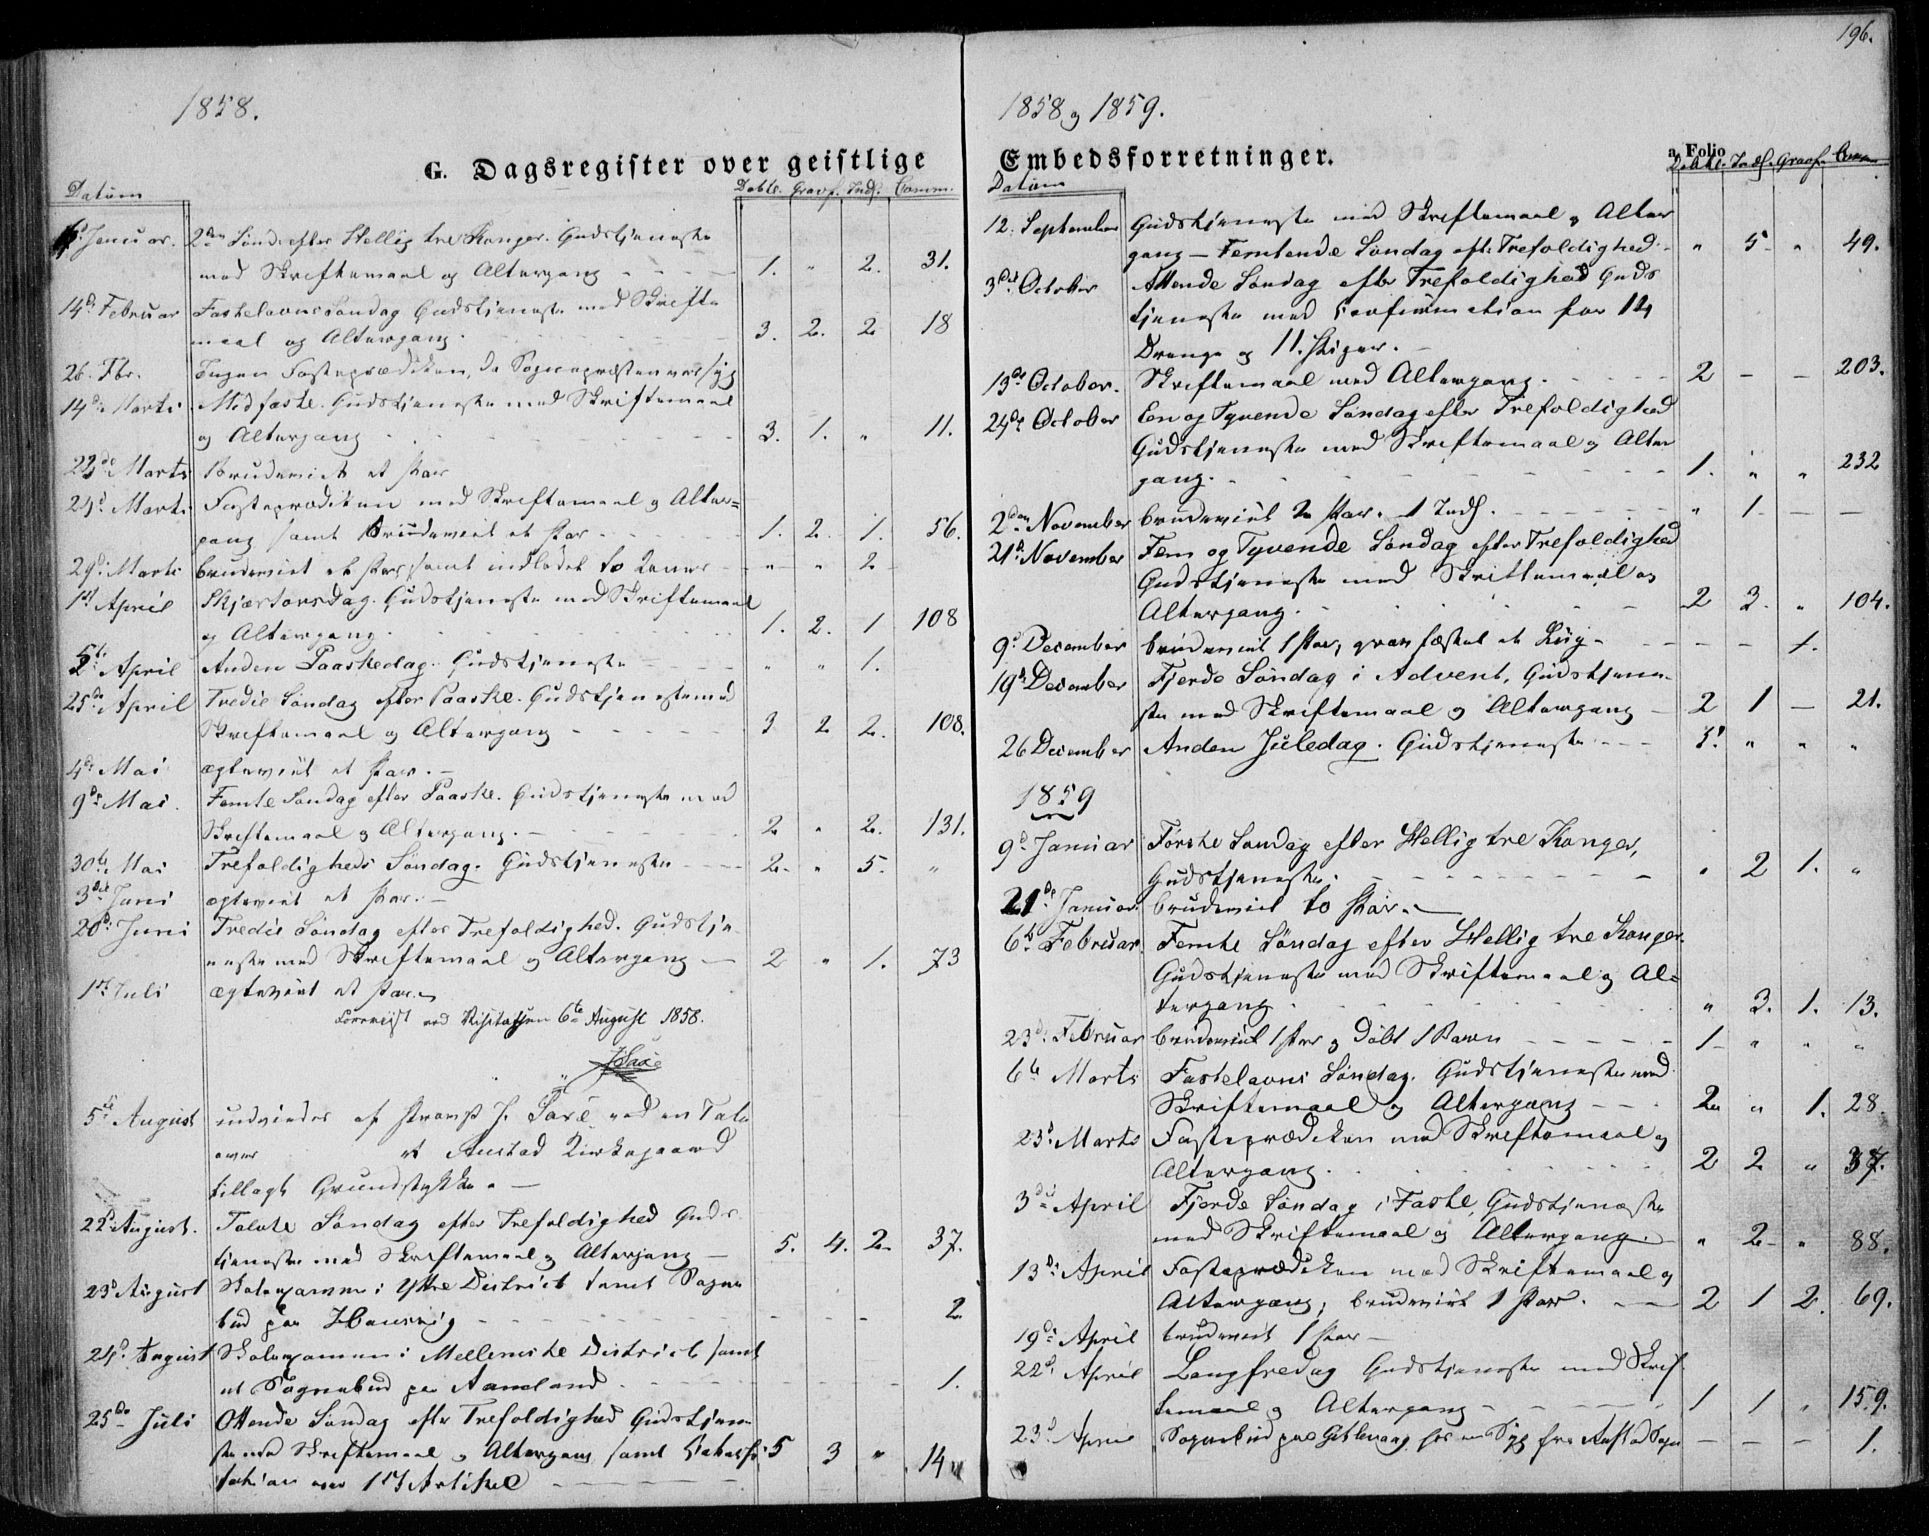 1858.
G. Dagsregister over geistlige
Datum
Døbte. Graaf. Inds. Comm.
Januar. 2den Sønd. efter Hellig tre Konger. Gudstjeneste
med Skriftemaal og Altergang 1. " 2. 31.
14de Februar Fastelavns Søndag Gudstjeneste med Skrifte
maal og Altergang. 3. 2. 2 18
26. Fbr. Ingen Fasteprædiken, da Sognepræsten var syg
14de Marts Midfaste. Gudstjeneste med Skriftemaal
og Altergang 3. 1. " 11.
22de Marts Brudeviet et Par
24d Marts Fasteprædiken med Skriftemaal og Alter=
gang samt Brudeviet et Par 1. 2. 1. 56.
29d Marts brudeviet et Par samt indledet to Koner " " 2
1st April Skjærtorsdag. Gudstjeneste med Skriftemaal
og Altergang. 1. 2. 1 108
5te April Anden Paaskedag. Gudstjeneste " " 1.
25de April Tredie Søndag efter Paaske. Gudstjeneste med
Skriftemaal og Altergang 3 2 2. 108.
4de Mai ægteviet et Par.
9de Mai. Femte Søndag efter Paaske. Gudstjeneste med
Skriftemaal og Altergang. 2 " 2. 131.
30te Mai Trefoldigheds Søndag. Gudstjeneste 2 " 5. "
3die Juni ægteviet et Par.
20d: Juni Tredie Søndag efter Trefoldighed. Gudstje
neste med Skriftemaal og Altergang 2 " 1. 73
1st Juli ægteviet et Par.
ved Visitatsen 6te August 1858.
5te August indviedes af Provst J. Saxe ved en Tale
over et Austad Kirkegaard
tillagt Grundstykke.
22d August. Tolvte Søndag efter Trefoldighed Guds
tjeneste med Skriftemaal og Altergang 5. 4. 2 37.
23d August Skoleexamen i Ytre District samt Sogne
bud paa 2
24d August Skoleexamen i Mellemste District samt
et Sognebud paa Aamland 1.
25de Juli Ottende Søndag efter Trefoldighed Gudstjene
ste med Skriftemaal og Altergang samt Katechi 5 3 " 14
sation over 1st Artikel
196.
1858 og 1859.
Embedsforretninger.
a. Folio
Datum
Døbte. Inds. Graaf. Comm
12. September Gudstjeneste med Skriftemaal og Alter
gang — Femtende Søndag eft. Trefoldighed. " 5 " 49.
3die October Attende Søndag efter Trefoldighed Guds
tjeneste med Confirmation for 14
Drenge og 11. Piger.
13de October. Skriftemaal med Altergang. 2 – – 203.
24de October Een og Tyvende Søndag efter Trefoldighed
Gudstjeneste med Skriftemaal og Alter
gang. 1. " " 232
2den November brudeviet 2 Par. 1 Inds. " 1 – –
21d November Fem og Tyvende Søndag efter Trefoldighed
Gudstjeneste med Skriftemaal og
Altergang. 2 3. " 104.
9d December brudeviet 1 Par, gravfæstet et Liig 1.
19d December Fjerde Søndag i Advent, Gudstjene
ste med Skriftemaal og Altergang 2 1 – 21.
26 December Anden Juledag. Gudstjeneste " " "
1859
9d Januar Første Søndag efter Hellig tre Konger,
Gudstjeneste. " 2 1. "
21de Januar brudeviet to Par.
6te Februar. Femte Søndag efter Hellig tre Konger.
Gudstjeneste med Skriftemaal og Al=
tergang. " 3. 1. 13.
23d: Februar brudeviet 1 Par og Døbt 1 Barn 1 " " "
6te Marts Fastelavns Søndag. Gudstjeneste med
Skriftemaal og Altergang 2 " 1. 28.
23d Marts Fasteprædiken med Skriftemaal og
Altergang. 2 2 "
3die April Fjerde Søndag i Faste, Gudstjeneste
med Skriftemaal og Altergang. " 2 " 88.
13de April Fasteprædiken med Skriftemaal og
Altergang, brudeviet 1 Par. 2 1 2. 69.
19de April brudeviet 1 Par
22d April Langfredag Gudstjeneste med Skrif
temaal og Altergang 1 1 " 159.
23d April Sognebud paa hos en Syg fra Austad Sogn – – – 1.